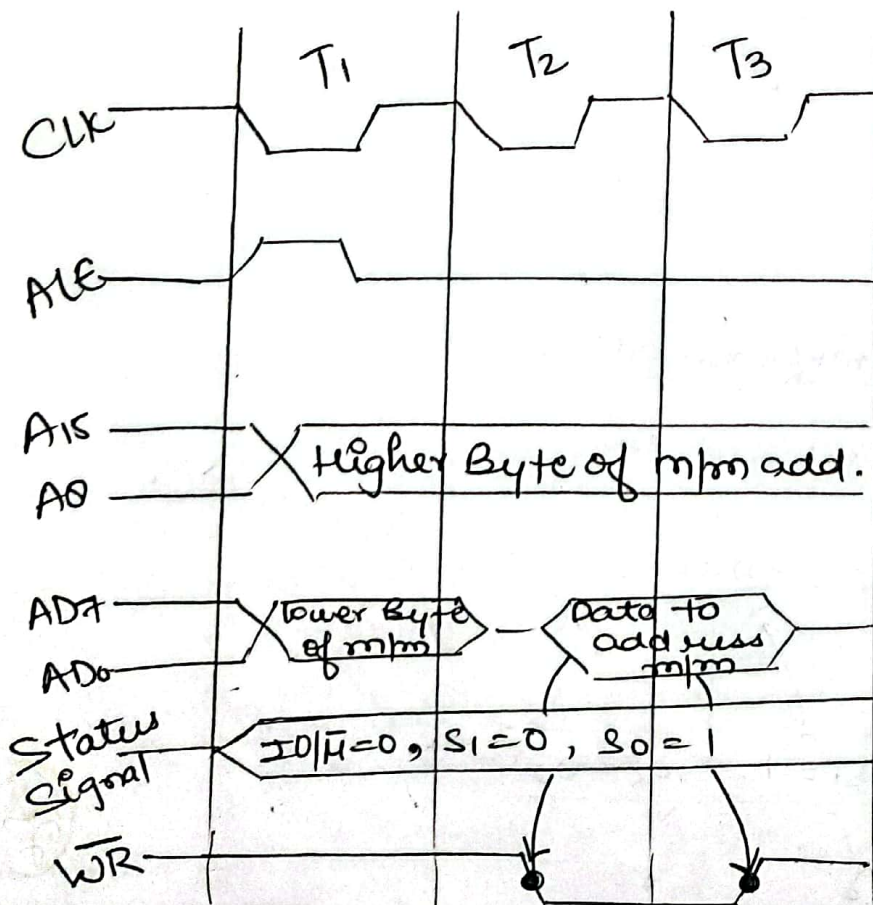 T1 T2 T3
CLK
ALE
A15
A8
Higher Byte of m/m add.
AD7
AD0
Lower Byte
of m/m
Data to
address
m/m
Status
Signal
IO/M̅=0, S1=0, S0=1
W̅R̅